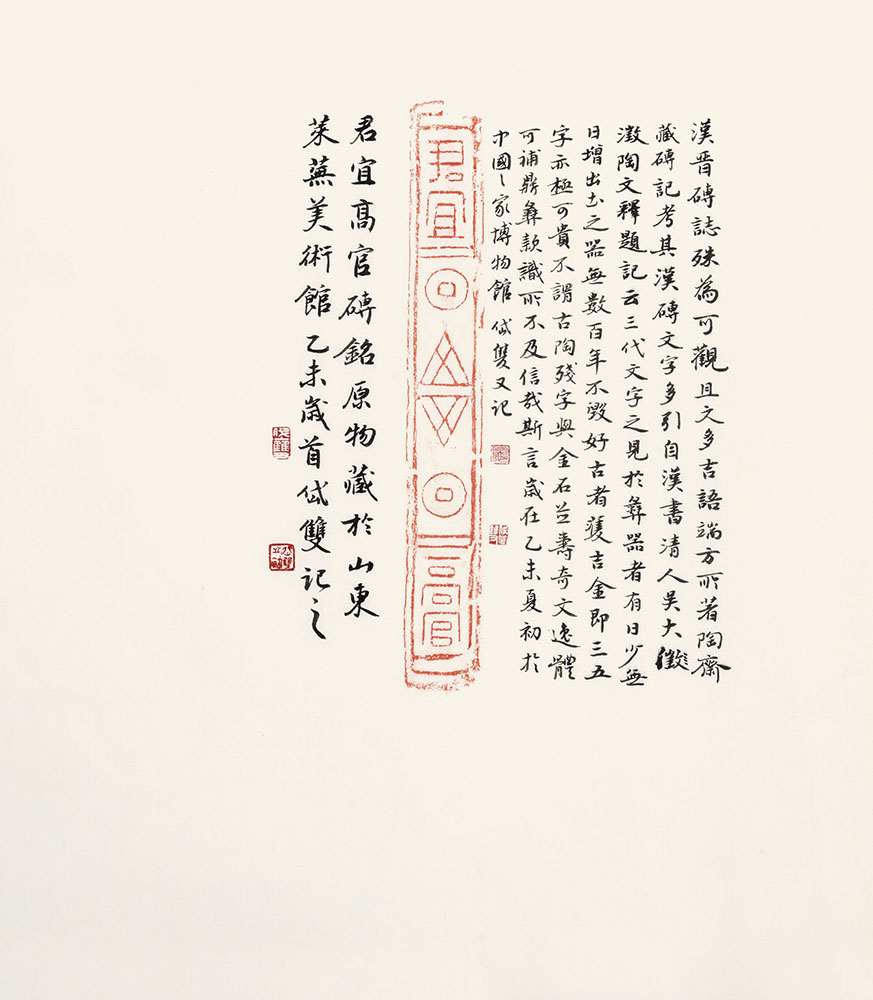 漢晋磚誌殊為可觀且文多吉語端方所著陶齋
藏磚記考其漢磚文字多引自漢書清人吳大徵
澂陶文釋題記云三代文字之見於彝器者有日少無
日增出土之器無數百年不毀好古者獲吉金即三五
字亦極可貴不謂古陶殘字與金石并壽奇文逸體
可補鼎彝款識所不及信哉斯言歲在乙未夏初於
中國〻家博物館岱雙又記
君宜高官
君宜高官磚銘原物藏於山東
萊蕪美術館乙未歲首岱雙記之